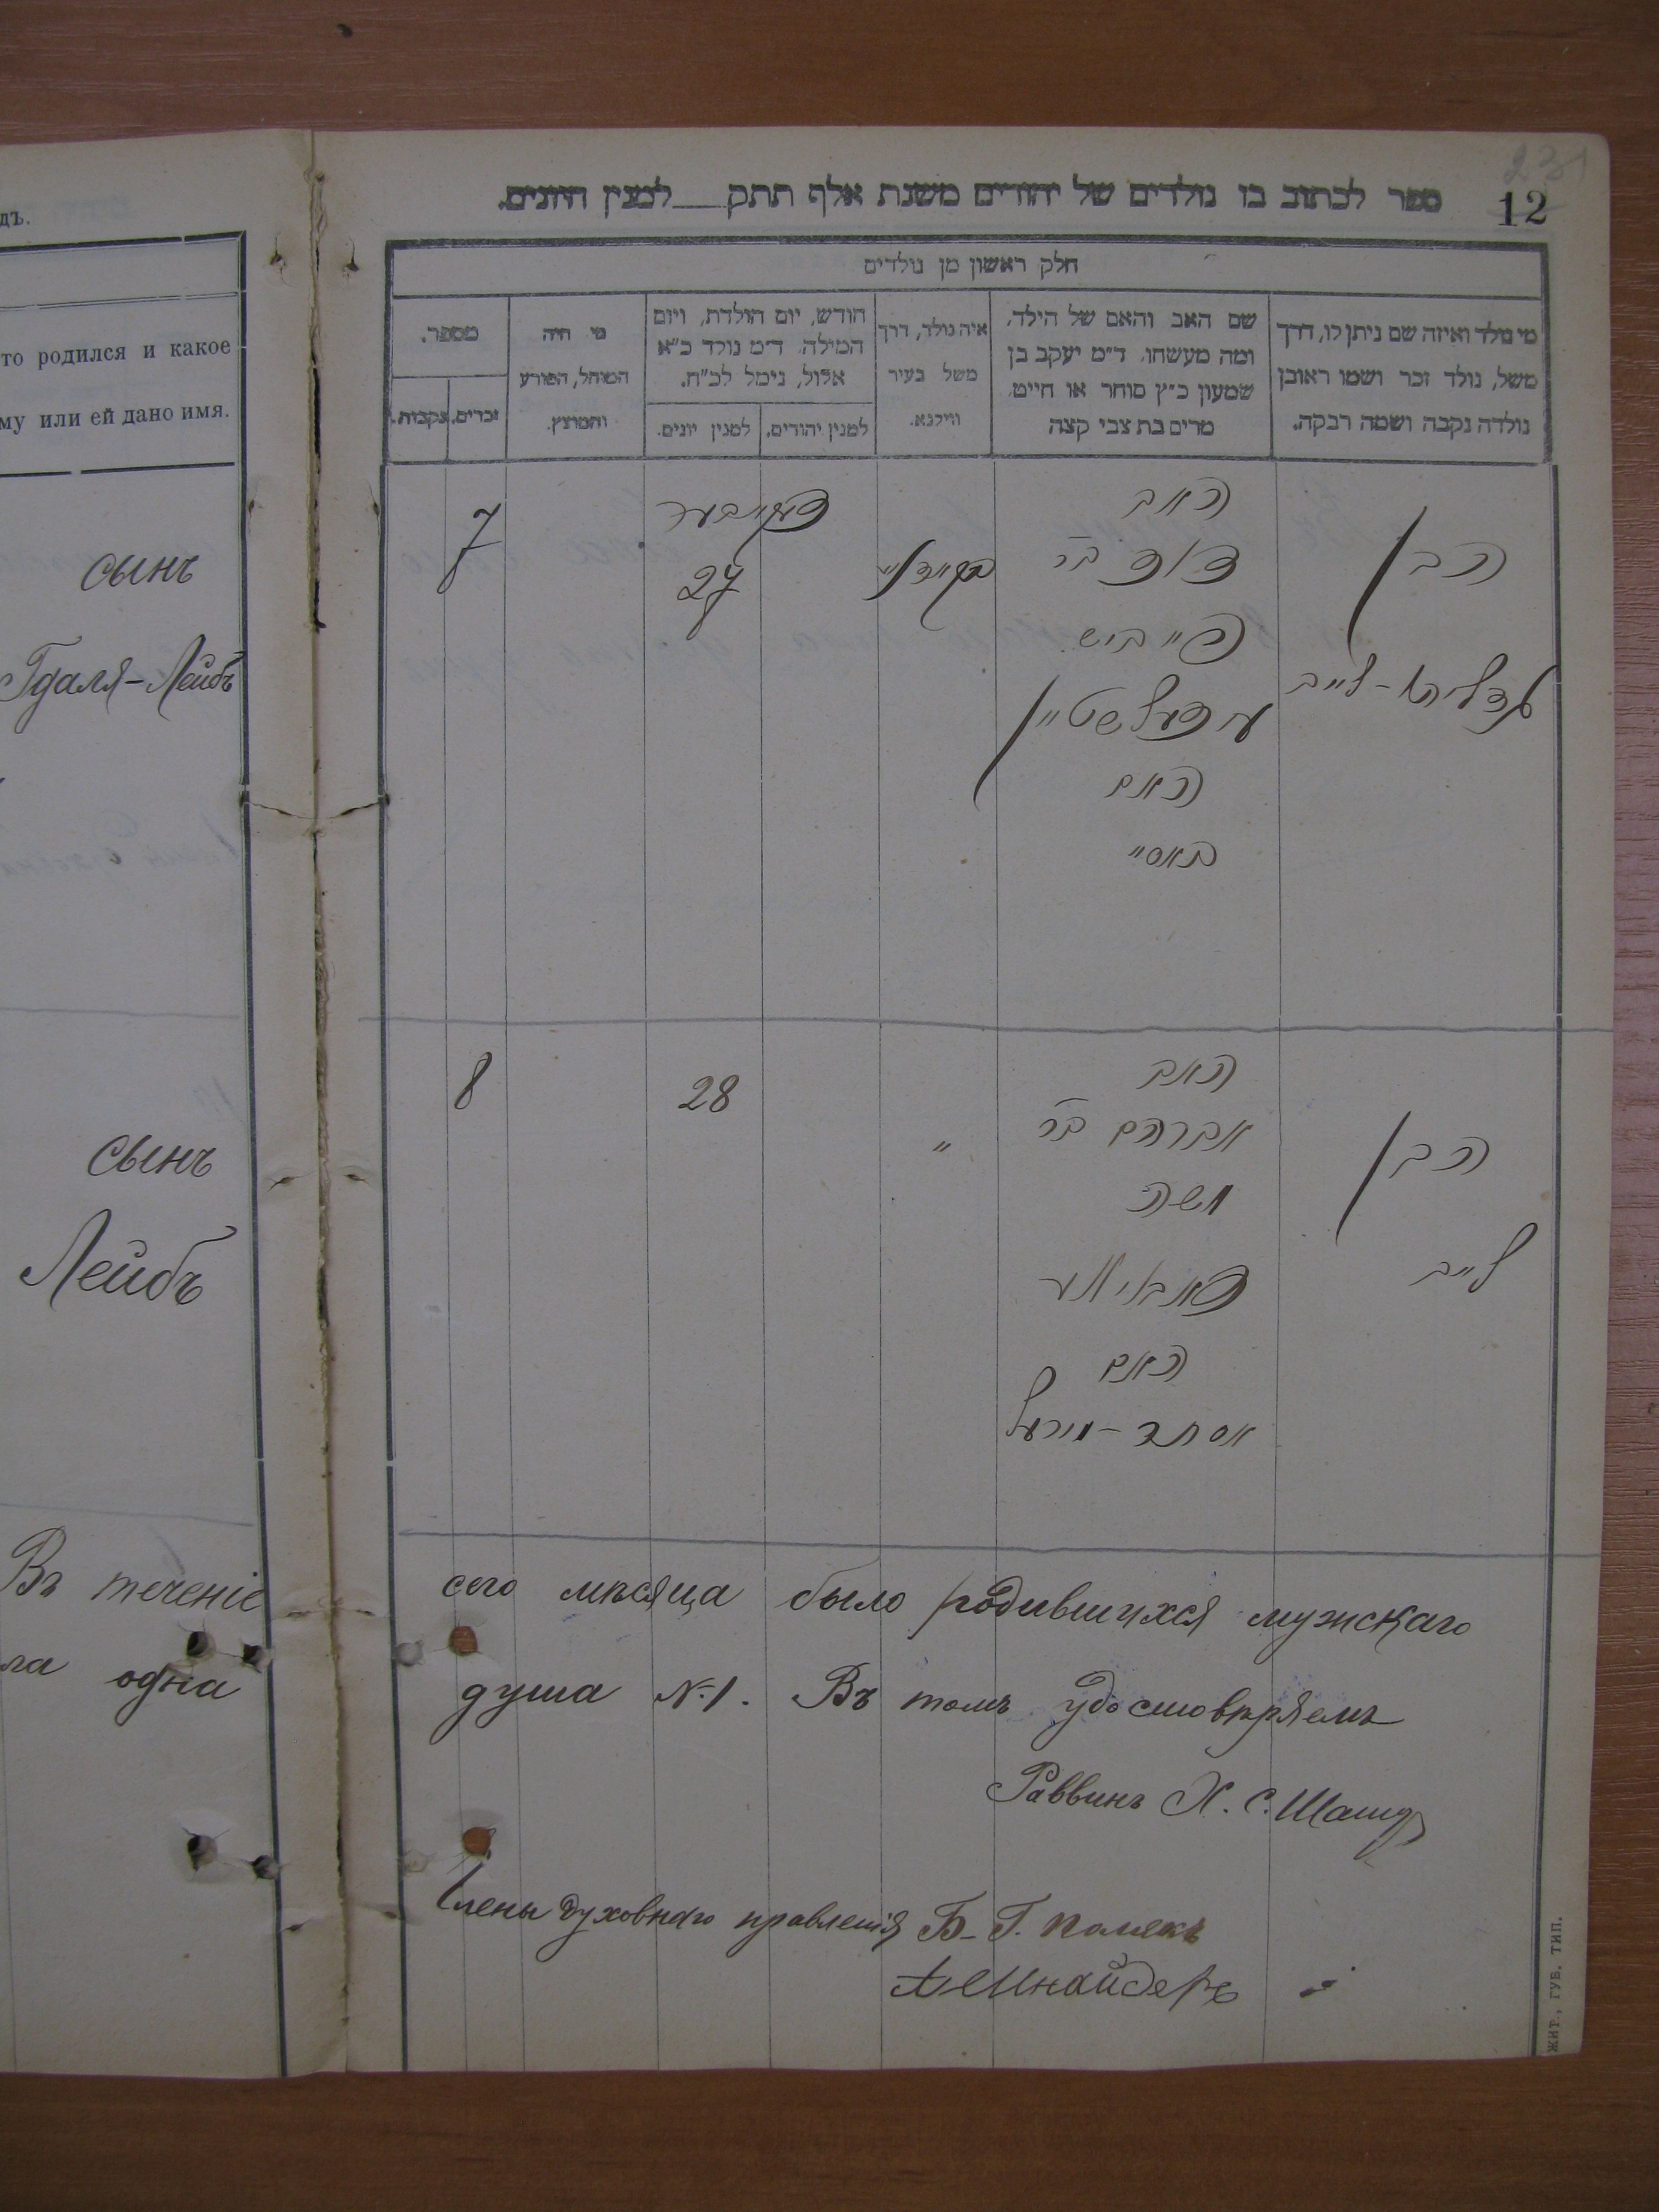 дъ.
то родился и какое
му или ей дано имя.
сынъ
Гдаля-Лейбъ
сынъ
Лейбъ
Въ теченіе
ла одна
12
ספר לכתוב בו נולדים של יהודים משנת אלף תתק למנין היונים.
חלק ראשון מן נולדים
מי נולד ואיזה שם ניתן לו, דרך
משל, נולד זכר ושמו ראובן
נולדה נקבה ושמה רבקה.
שם האב והאם של הילד,
ומה מעשהו, ד״מ יעקב בן
שמעון כ״ץ סוחר או חייט,
מרים בת צבי קצה
איה נולד, דרך
משל בעיר
ווילנא.
חודש, יום הולדת, ויום
המילה, ד״מ נולד כ״א
אלול, נימל לכ״ח.
למנין יהודים.
למנין יונים.
מי היה
המוהל, הפורע
והמוצץ.
מספר.
זכרים.
נקבות.
הבן
גדליהו-לייב
האב
דוד בר
פייביש
עדעלשטיין
האם
באסיי
27
7
הבן
לייב
האב
אברהם בר
משה
האם
אסתר-מירעל
"
28
8
сего мѣсяца было родившихся мужскаго
душа №1. Въ томъ удостовѣряемъ
Раввинъ Х. С.
Члены духовнаго правленія Б-Г. Полякъ
Шнайдеръ
ЖИТ., ГУБ. ТИП.